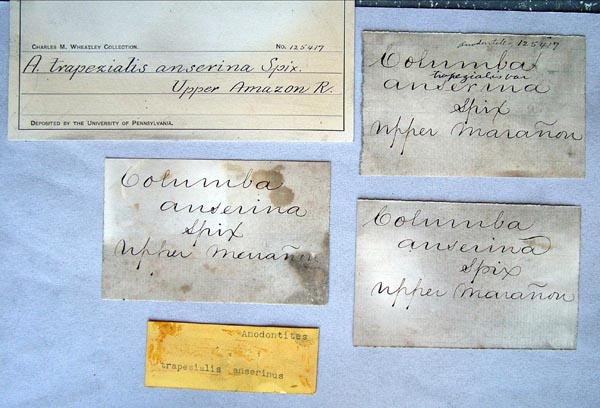 CHARLES M. WHEATLEY COLLECTION. No. 125417
A. trapezialis anserina Spix.
Upper Amazon R.
DEPOSITED BY THE UNIVERSITY OF PENNSYLVANIA.
Anodontites 125417
Columba
trapezialis var
anserina
Spix
Upper Marañon
Columba
anserina
Spix
Upper Marañon
Columba
anserina
Spix
Upper Marañon
Anodontites
trapesialis anserinus